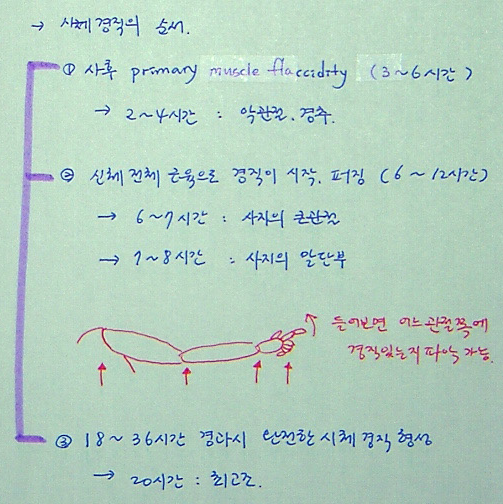 → 사체 경직의 순서.
① 사후 primary muscle flaccidity (3~6시간)
→ 2~4시간 : 악관절. 경추.
② 신체 전체 근육으로 경직이 시작. 퍼짐 (6~12시간)
→ 6~7시간 : 사지의 큰관절
→ 7~8시간 : 사지의 말단부
들어보면 어느관절쪽에
경직있는지 파악 가능.
③ 18~36시간 경과시 완전한 시체 경직 형성
→ 20시간 : 최고조.